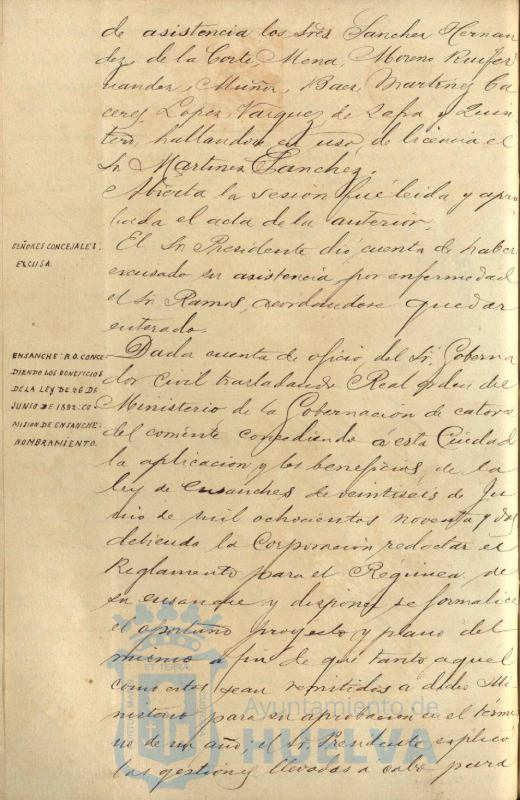 de asistencia los Sres Sanchez Hernan
dez, de la Corte, Mena, Moreno, Ruifer
nandez, Muñoz, Baez, Martinez Ca
ceres, Lopez, Vazquez de Zafra y Quin
tero, hallandose en uso de licencia el
Sr. Martinez Sanchez.
Abierta la sesión fué leida y apro
bada el acta de la anterior.
SEÑORES CONCEJALES:
EXCUSA.
El Sr Presidente dió cuenta de haber
excusado su asistencia por enfermedad
el Sr. Ramos, acordandose quedar
enterado.
ENSANCHE: R.O. CONCE
DIENDO LOS BENEFICIOS
DE LA LEY DE 26 DE
JUNIO DE 1892: CO-
MISION DE ENSANCHE:
NOMBRAMIENTO.
Dada cuenta de oficio del Sr. Goberna
dor civil trasladando Real orden del
Ministerio de la Gobernacion de catorce
del corriente concediendo á esta Ciudad
la aplicacion y los beneficios de la
ley de ensanches de veintiseis de Ju
nio de mil ochocientos noventa y dos
debiendo la Corporación redactar el
Reglamento para el Regimen de
su ensanche y disponer se formalice
el oportuno proyecto y plano del
mismo a fin de que tanto aquel
como estos sean remitidos a dicho Mi
nisterio para su aprobacion en el térmi
no de un año; el Sr. Presidente explicó
las gestiones llevadas a cabo para
Ayuntamiento de
HUELVA